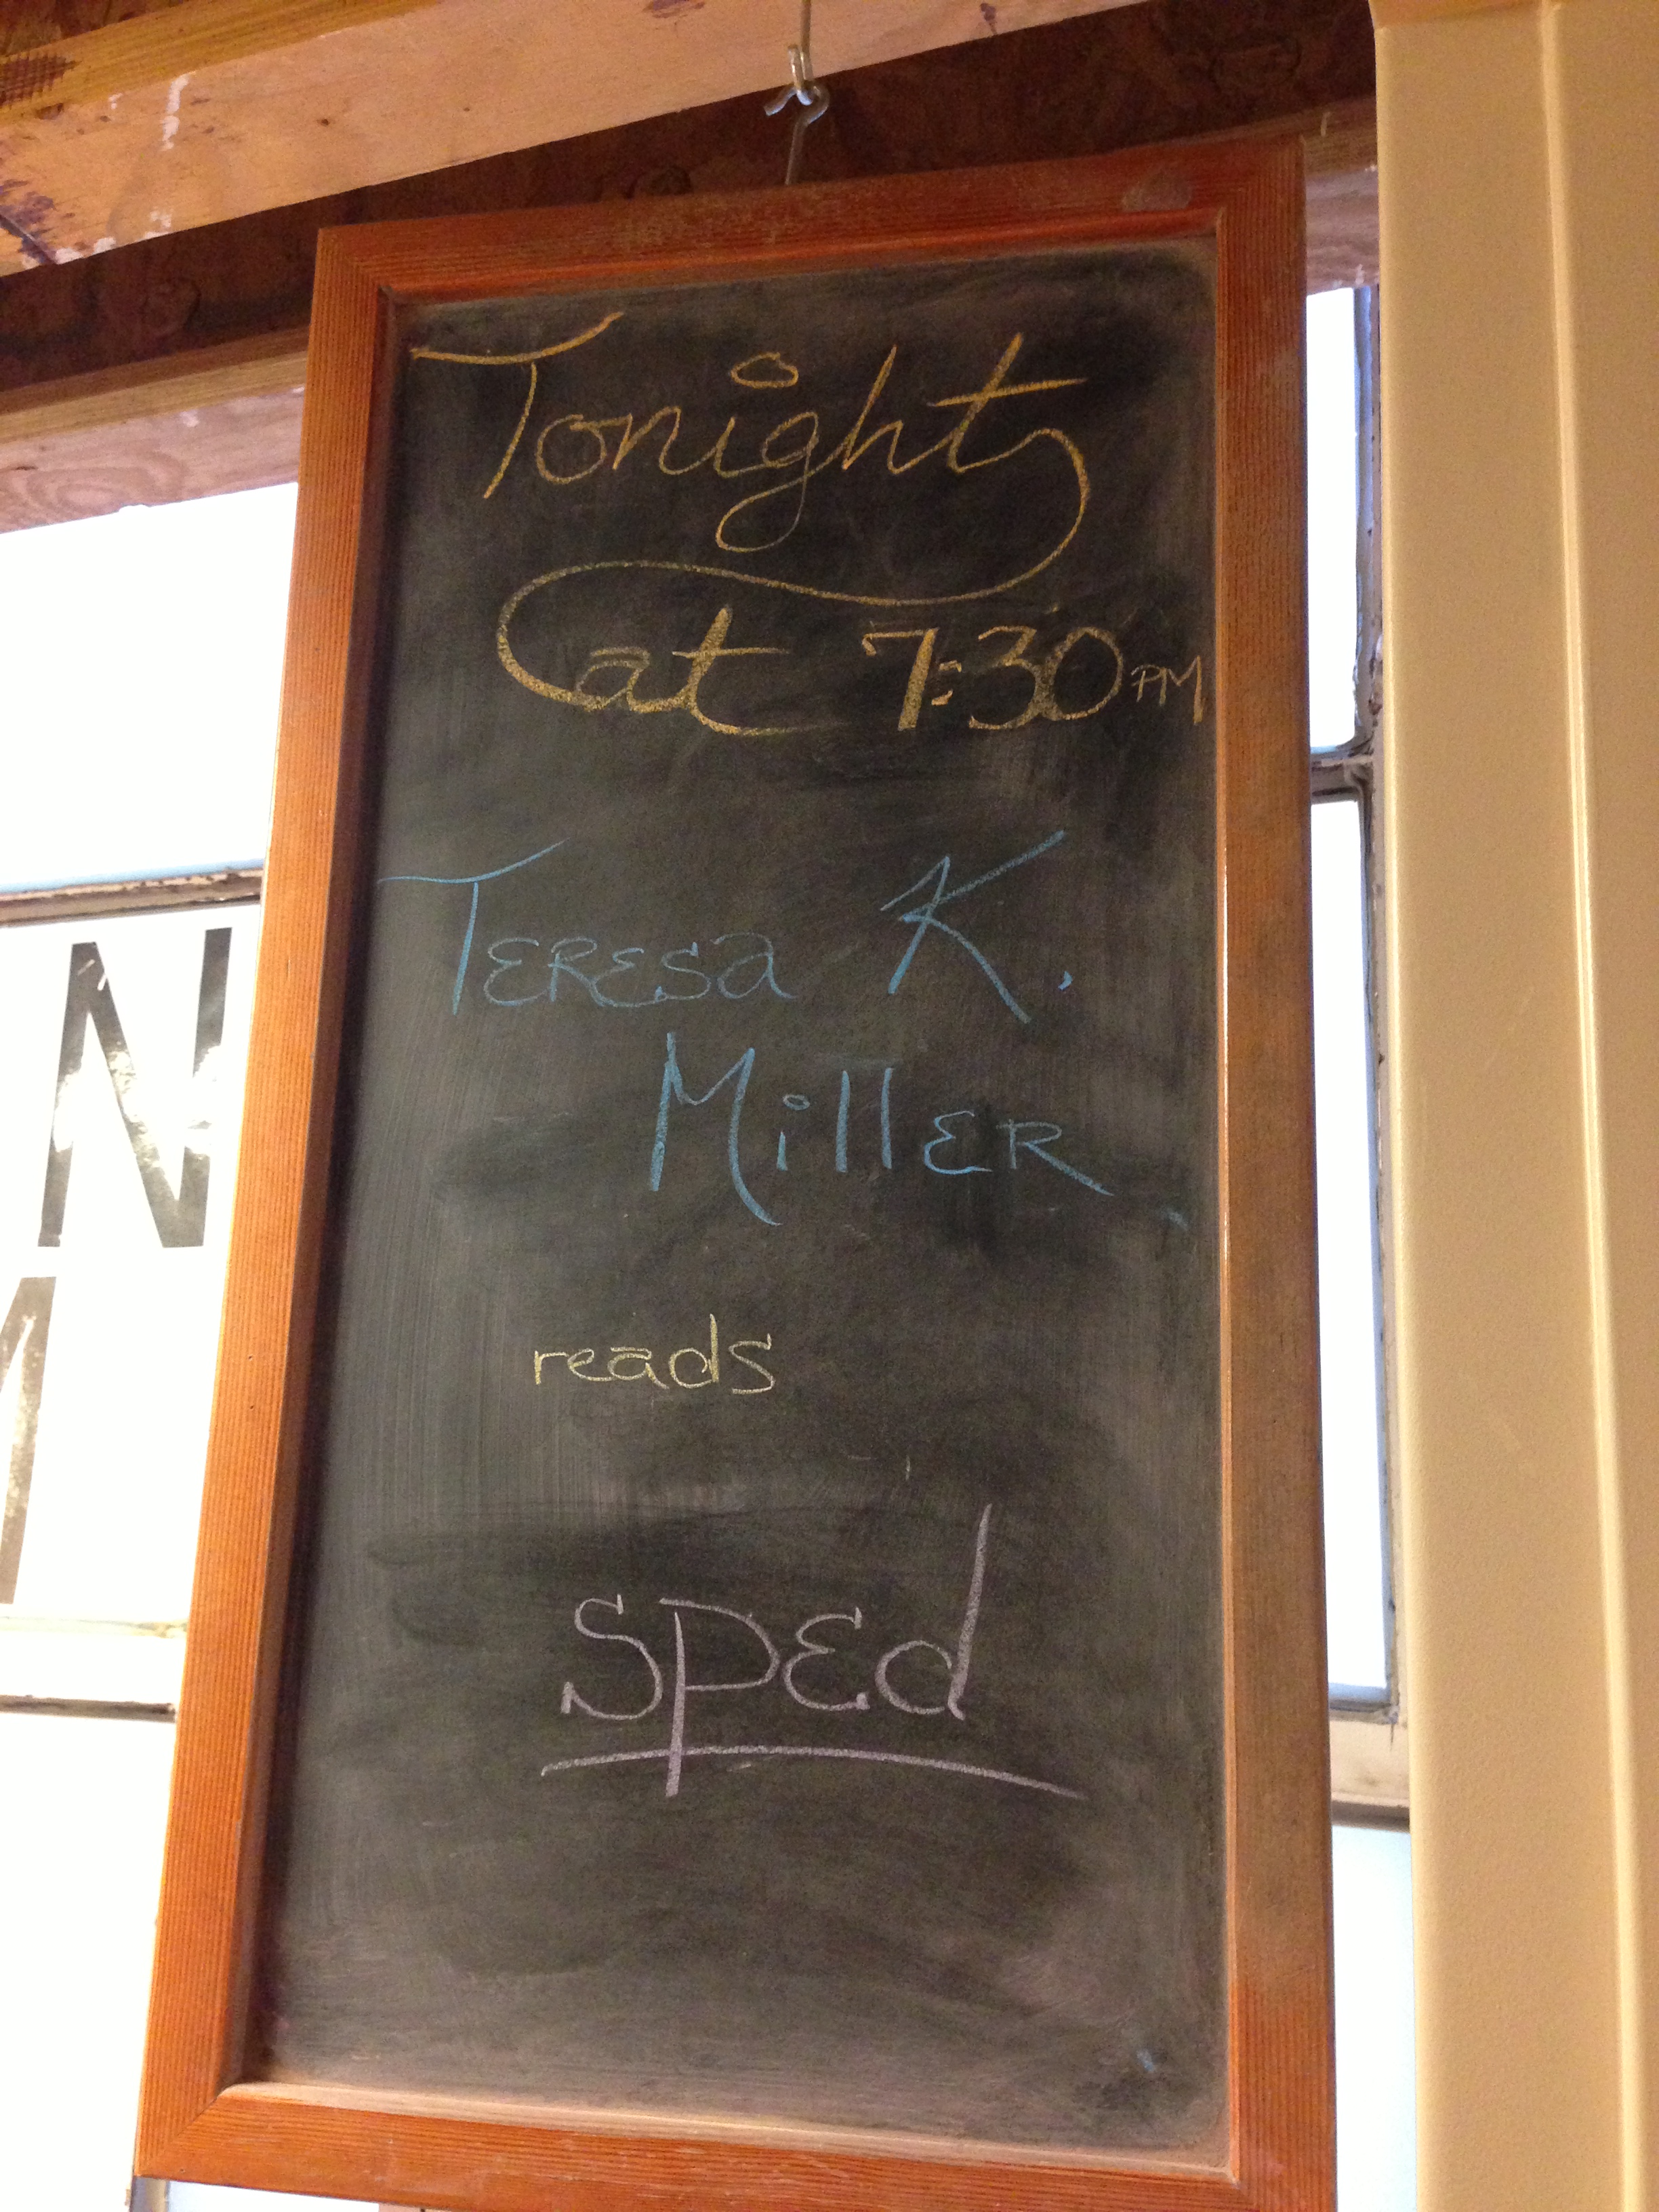 Tonight
at 7:30 PM
TERESa K.
MillER
reads
spEd
N
M